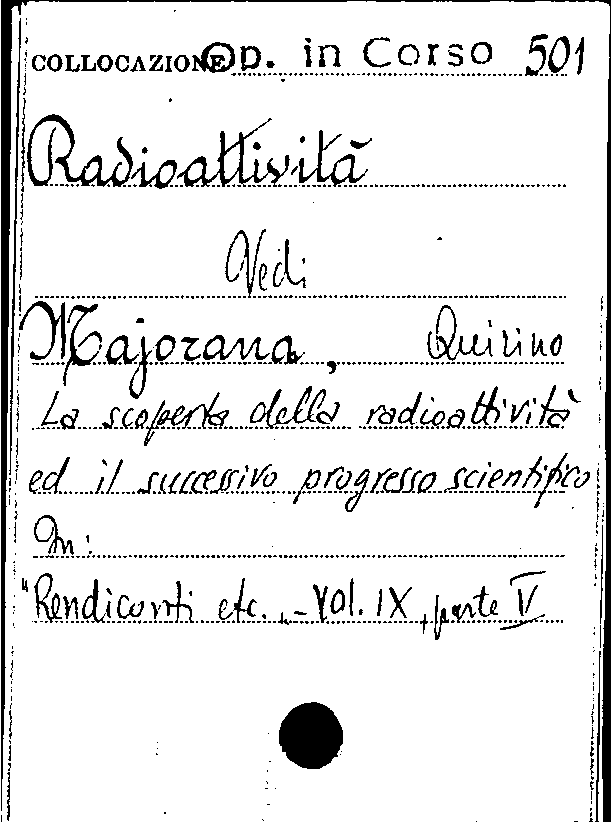 COLLOCAZIONE Op. in Corso 501
Radioattività
Vedi
Majorana, Quirino
La scoperta della radioattività
ed il successivo progresso scientifico
In:
"Rendiconti etc. „ - Vol. IX, parte V